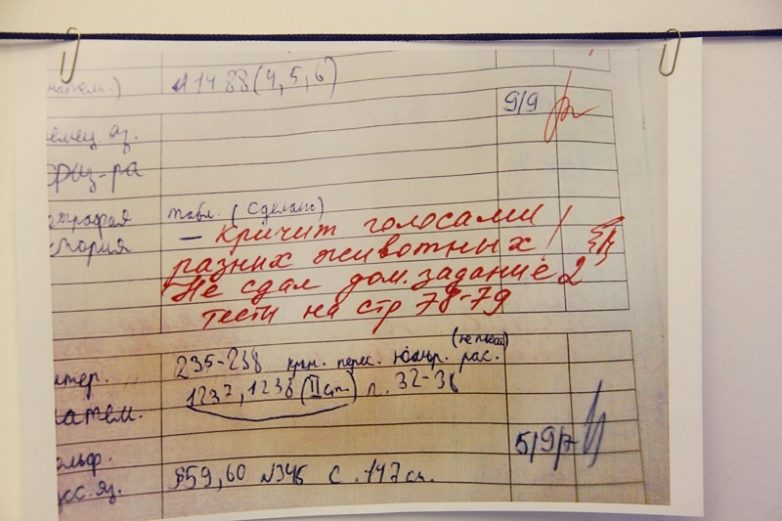 матем.) №1488(4,5,6)
9/9
емец. яз.
физ-ра
еография табл. (Сделать)
стория – кричит голосами
разных животных!
Не сдал дом. задание 2
тесты на стр 78-79
итер. 235-238 (не писат)
атем. 1237, 1238 (II ст.) п. 32-36
ольф. 5/9/7
сс. яз. §59,60 №346 с. 147 сл.